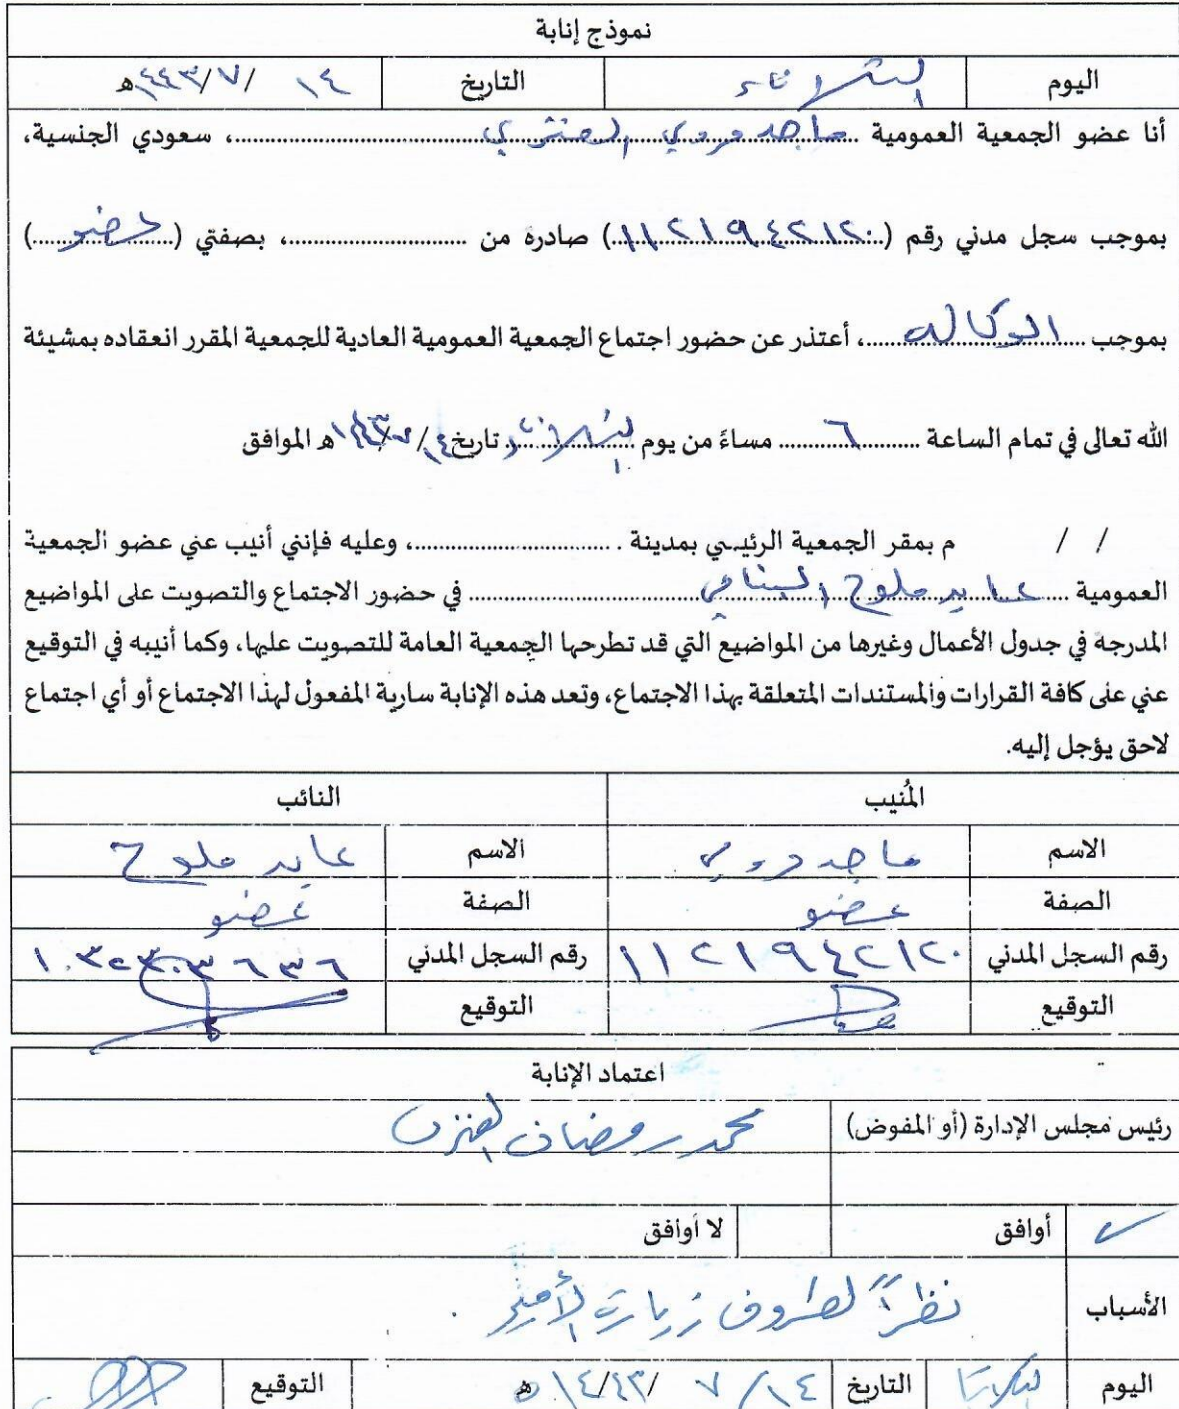 نموذج إنابة
اليوم الثلاثاء التاريخ ١٤ /٧/ ١٤٤٣هـ
أنا عضو الجمعية العمومية ماجد مروي العنزي، سعودي الجنسية،
بموجب سجل مدني رقم (١١٢١٩٤٢١٢٠) صادره من ................، بصفتي (عضو)
بموجب الوكاله، أعتذر عن حضور اجتماع الجمعية العمومية العادية للجمعية المقرر انعقاده بمشيئة
الله تعالى في تمام الساعة ٦ مساءً من يوم الثلاثاء تاريخ ١٤/٧/١٤٤٣هـ الموافق
/ / م بمقر الجمعية الرئيسي بمدينة ................، وعليه فإنني أنيب عني عضو الجمعية
العمومية عايد ملوح في حضور الاجتماع والتصويت على المواضيع
المدرجه في جدول الأعمال وغيرها من المواضيع التي قد تطرحها الجمعية العامة للتصويت عليها، وكما أنيبه في التوقيع
عني على كافة القرارات والمستندات المتعلقة بهذا الاجتماع، وتعد هذه الإنابة سارية المفعول لهذا الاجتماع أو أي اجتماع
لاحق يؤجل إليه.
المُنيب النائب
الاسم ماجد مروي الاسم عايد ملوح
الصفة عضو الصفة عضو
رقم السجل المدني ١١٢١٩٤٢١٢٠ رقم السجل المدني
التوقيع التوقيع
اعتماد الإنابة
رئيس مجلس الإدارة (أو المفوض) محمد رمضان العنزي
أوافق لا أوافق
الأسباب نظراً لظروف زيارة الأمير .
اليوم الثلاثاء التاريخ ١٤/ ٧ /١٤٤٣ هـ التوقيع